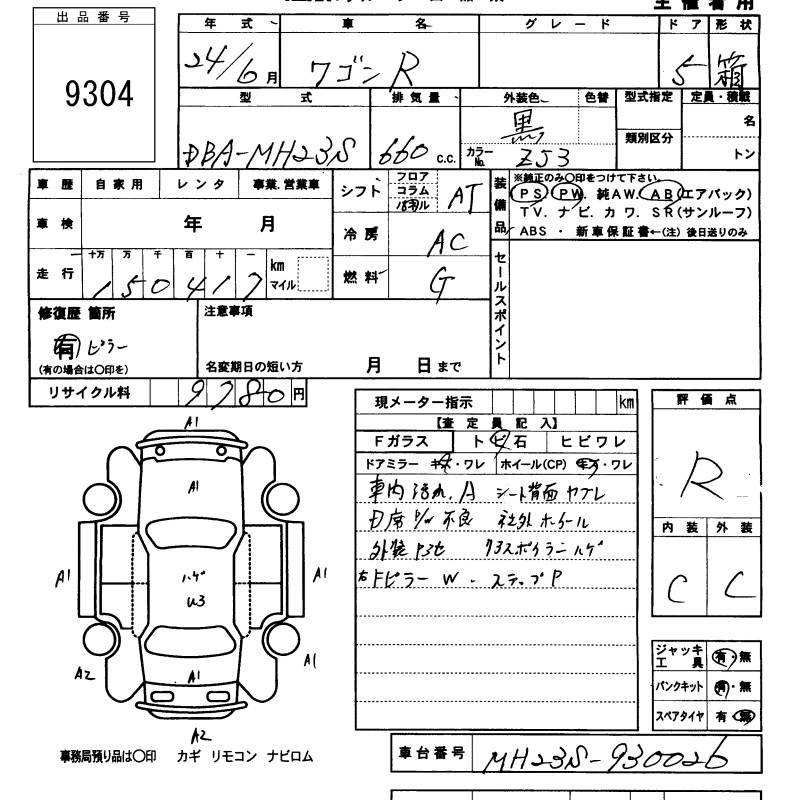 出品番号
9304
年 式 車 名 グ レ ー ド ド ア 形 状
24/6月 ワゴンR 5 箱
型 式 排 気 量 外装色 色替 型式指定 定員・積載
DBA-MH23S 660 c.c. 黒 類別区分 名
カラーNo. Z53 トン
車 歴 自 家 用 レ ン タ 事業.営業車
車 検 年 月
走 行 十万 万 千 百 十 一 km マイル
150417
シフト フロア コラム AT
冷 房 AC
燃 料 G
装備品
※純正のみ〇印をつけて下さい。
PS PW. 純AW. AB(エアバック)
TV. ナビ. カワ. SR(サンルーフ)
ABS ・ 新車保証書←(注) 後日送りのみ
セールスポイント
修復歴 箇所
有 ピラー
(有の場合は〇印を)
注意事項
名変期日の短い方 月 日 まで
リサイクル料 9780 円
現メーター指示 km
【査 定 員 記 入】
Fガラス トビ石 ヒビワレ
ドアミラー キズ・ワレ ホイール(CP) キズ・ワレ
車内 汚れ.A シート背面 ヤブレ
D席 P/W 不良 社外ホイール
右Fピラー W . ステップP
評 価 点
R
内 装 外 装
C C
ジャッキ工具 有・無
パンクキット 有・無
スペアタイヤ 有 無
A1
A1
A1
ハゲ
U3
A1
A1
A2
A1
A2
事務局預り品は〇印 カギ リモコン ナビロム
車台番号 MH23S-930026